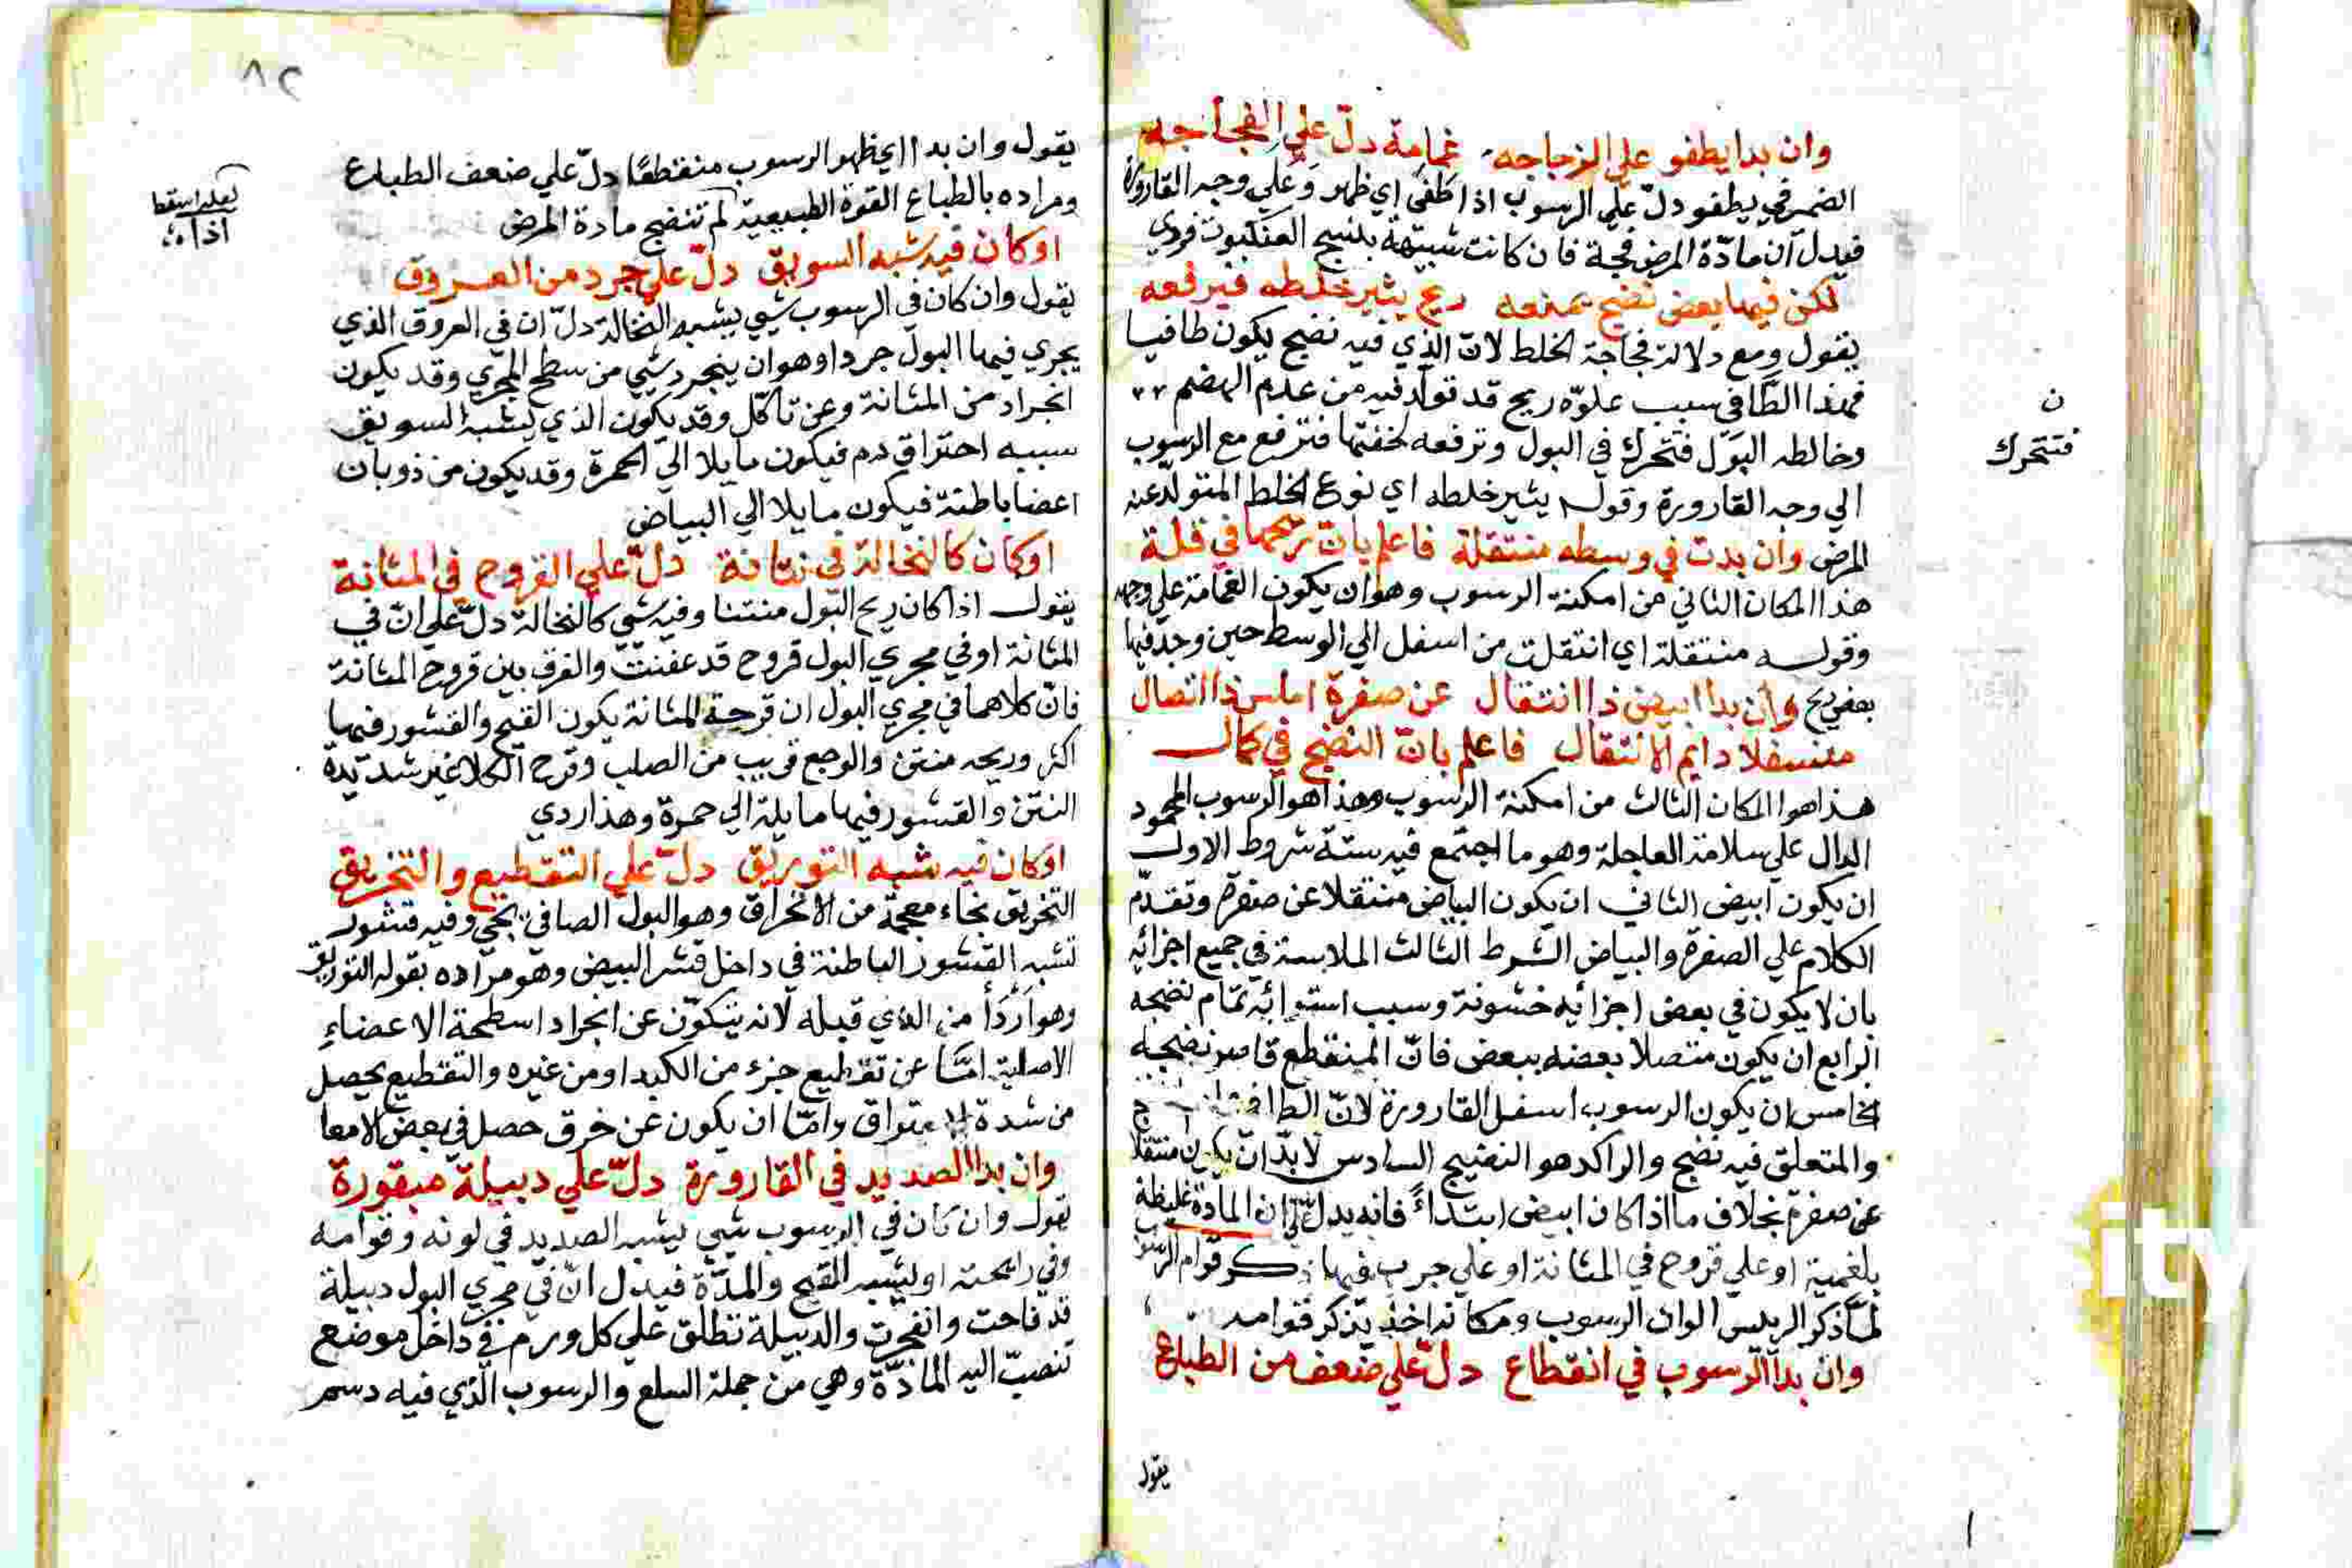 وان بدا يطفو علي الزجاجه غمامة دلّ علي الفجاجه
الضمير في يطفو دلّ علي الرسوب اذا طفي اي ظهر وعلي وجه القارورة
فيدل ان مادّة المرض فجة فان كانت شبيهة بنسج العنكبوت فردي
لكن فيها بعض نضج يمنعه ريح يثير خلطه فيرفعه
يقول ومع دلالته فجاجة الخلط لانّ الذي فيه نضج يكون طافيا
فهذا الطّافي سبب علوّه ريح قد تولّد فيه من عدم الهضم
وخالطه البول فتحرك في البول وترفعه لخفتها فترفع مع الرسوب
الي وجه القارورة وقوله يثير خلطه اي نوع الخلط المتولّد عنه
المرض وان بدت في وسطه منتقلة فاعلم بان ريحها في قلة
هذا المكان الثاني من امكنة الرسوب وهو ان يكون الغمامة علي وجه
وقوله منتقلة اي انتقلت من اسفل الي الوسط حين وجد فيها
بعض ريح وان بدا ابيض ذا انتقال عن صفرة املس ذا اتصال
متسفلا دايم الانتقال فاعلم بانّ النضج في كمال
هذا هو المكان الثالث من امكنة الرسوب وهذا هو الرسوب المحمود
الدال علي سلامة العاجلة وهو ما اجتمع فيه ستة شروط الاول
ان يكون ابيض الثاني ان يكون البياض منتقلا عن صفرة وتقدّم
الكلام علي الصفرة والبياض الشرط الثالث الملاسة في جميع اجزائه
بان لا يكون في بعض اجزائه خشونة وسبب استوائه تمام نضجه
الرابع ان يكون متصلا بعضه ببعض فانّ المنقطع قاصر نضجه
الخامس ان يكون الرسوب اسفل القارورة لانّ الطافي
والمتعلق فيه نضج والراكد هو النضيج السادس لابدّ ان يكون منتقلا
عن صفرة بخلاف ما اذا كان ابيض ابتداءً فانه يدلّ علي ان المادة غليظة
بلغمية او علي قروح في المثانة او علي جرب فيها ذكر قوام الرسوب
لمّا ذكر الرييس الوان الرسوب ومكانه اخذ يذكر قوامه
وان بدا الرسوب في انقطاع دلّ علي ضعف من الطباع
يقول
ن
فتتحرك
٨٢
يقول وان بدا اي ظهر الرسوب منقطعًا دلّ علي ضعف الطباع
ومراده بالطباع القوة الطبيعية لم تنضج مادة المرض
او كان فيه شبه السويق دلّ علي جرد من العروق
يقول وان كان في الرسوب شيي يشبه النخالة دلّ ان في العروق الذي
يجري فيها البول جردا وهو ان ينجرد شيي من سطح المجري وقد يكون
انجراد من المثانة وعن تاكّل وقد يكون الذي يشبه السويق
سببه احتراق دم فيكون مايلا الي الحمرة وقد يكون من ذوبان
اعضا باطنة فيكون مايلا الي البياض
او كان كالنخالة في نتانة دلّ علي القروح في المثانة
يقول اذا كان ريح البول منتنا وفيه شيي كالنخالة دلّ علي انّ في
المثانة او في مجري البول قروح قد عفنت والفرق بين قروح المثانة
فانّ كلاهما في مجري البول ان قرحة المثانة يكون القيح والقشور فيها
اكثر وريحه منتن والوجع قريب من الصلب وقرح الكلا غير شديدة
النتن والقشور فيها مايلة الي حمرة وهذا ردي
او كان فيه شبه التوريق دلّ علي التقطيع والتخريق
التخريق بخاء معجمة من الانخراق وهو البول الصافي يجي وفيه قشور
تشبه القشور الباطنة في داخل قشر البيض وهو مراده بقوله التوريق
وهو اردأ من الذي قبله لانه يتكوّن عن انجراد اسطحة الاعضاء
الاصلية امّا عن تقطيع جزء من الكبد او من غيره والتقطيع يحصل
من شدة الاحتراق وامّا ان يكون عن خرق حصل في بعض الامعا
وان بدا الصديد في القارورة دلّ علي دبيلة مبقورة
يقول وان كان في الرسوب شيي يشبه الصديد في لونه وقوامه
وفي رايحته او يشبه القيح والمدّة فيدل انّ في مجري البول دبيلة
قد فاحت وانفجرت والدبيلة تطلق علي كل ورم في داخل موضع
تنصبّ اليه المادّة وهي من جملة السلع والرسوب الذي فيه دسم
لعله اسقط
اذا